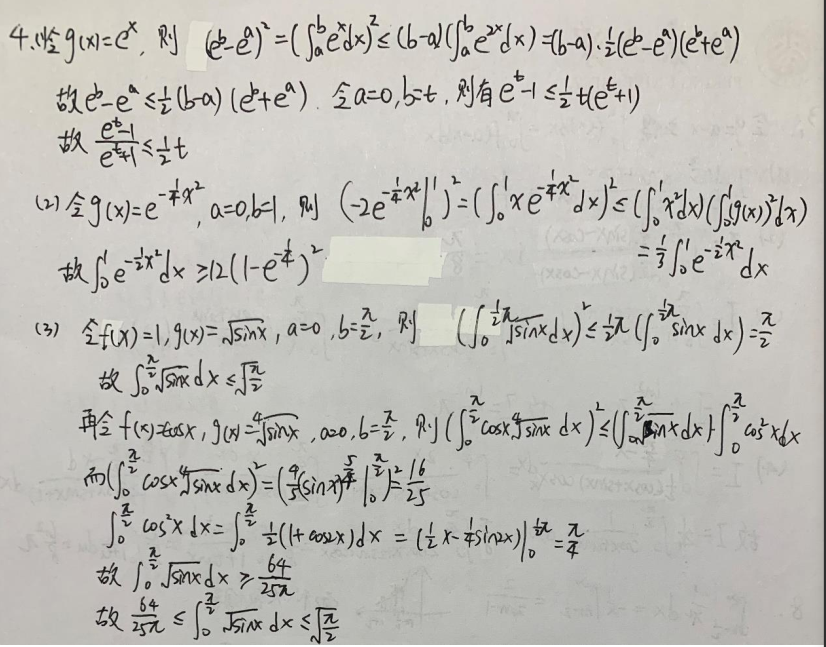 4.(1)令g(x)=e^x, 则 (e^b-e^a)^2=(∫_a^b e^x dx)^2≤(b-a)(∫_a^b e^{2x}dx)=(b-a)·1/2(e^b-e^a)(e^b+e^a)
故e^b-e^a≤1/2(b-a)(e^b+e^a). 令a=0,b=t, 则有e^t-1≤1/2t(e^t+1)
故 (e^t-1)/(e^t+1)≤1/2t
(2)令g(x)=e^{-1/4x^2}, a=0,b=1, 则 (-2e^{-1/4x^2}|_0^1)^2=(∫_0^1 xe^{-1/4x^2}dx)^2≤(∫_0^1 x^2dx)(∫_0^1(g(x))^2dx)
=1/3∫_0^1 e^{-1/2x^2}dx
故∫_0^1 e^{-1/2x^2}dx≥12(1-e^{-1/4})^2
(3) 令f(x)=1,g(x)=√sinx, a=0,b=π/2, 则 (∫_0^{1/2π}√sinx dx)^2≤1/2π(∫_0^{1/2π}sinx dx)=π/2
故∫_0^{π/2}√sinx dx≤√(π/2)
再令f(x)=cosx, g(x)=∜sinx, a=0,b=π/2, 则(∫_0^{π/2}cosx∜sinx dx)^2≤(∫_0^{π/2}√sinx dx)∫_0^{π/2}cos^2xdx
而(∫_0^{π/2}cosx∜sinx dx)^2=(4/5(sinx)^{5/4}|_0^{π/2})^2=16/25
∫_0^{π/2}cos^2x dx=∫_0^{π/2}1/2(1+cos2x)dx=(1/2x-1/4sin2x)|_0^{1/2π}=π/4
故∫_0^{π/2}√sinx dx≥64/25π
故64/25π≤∫_0^{π/2}√sinx dx≤√(π/2)